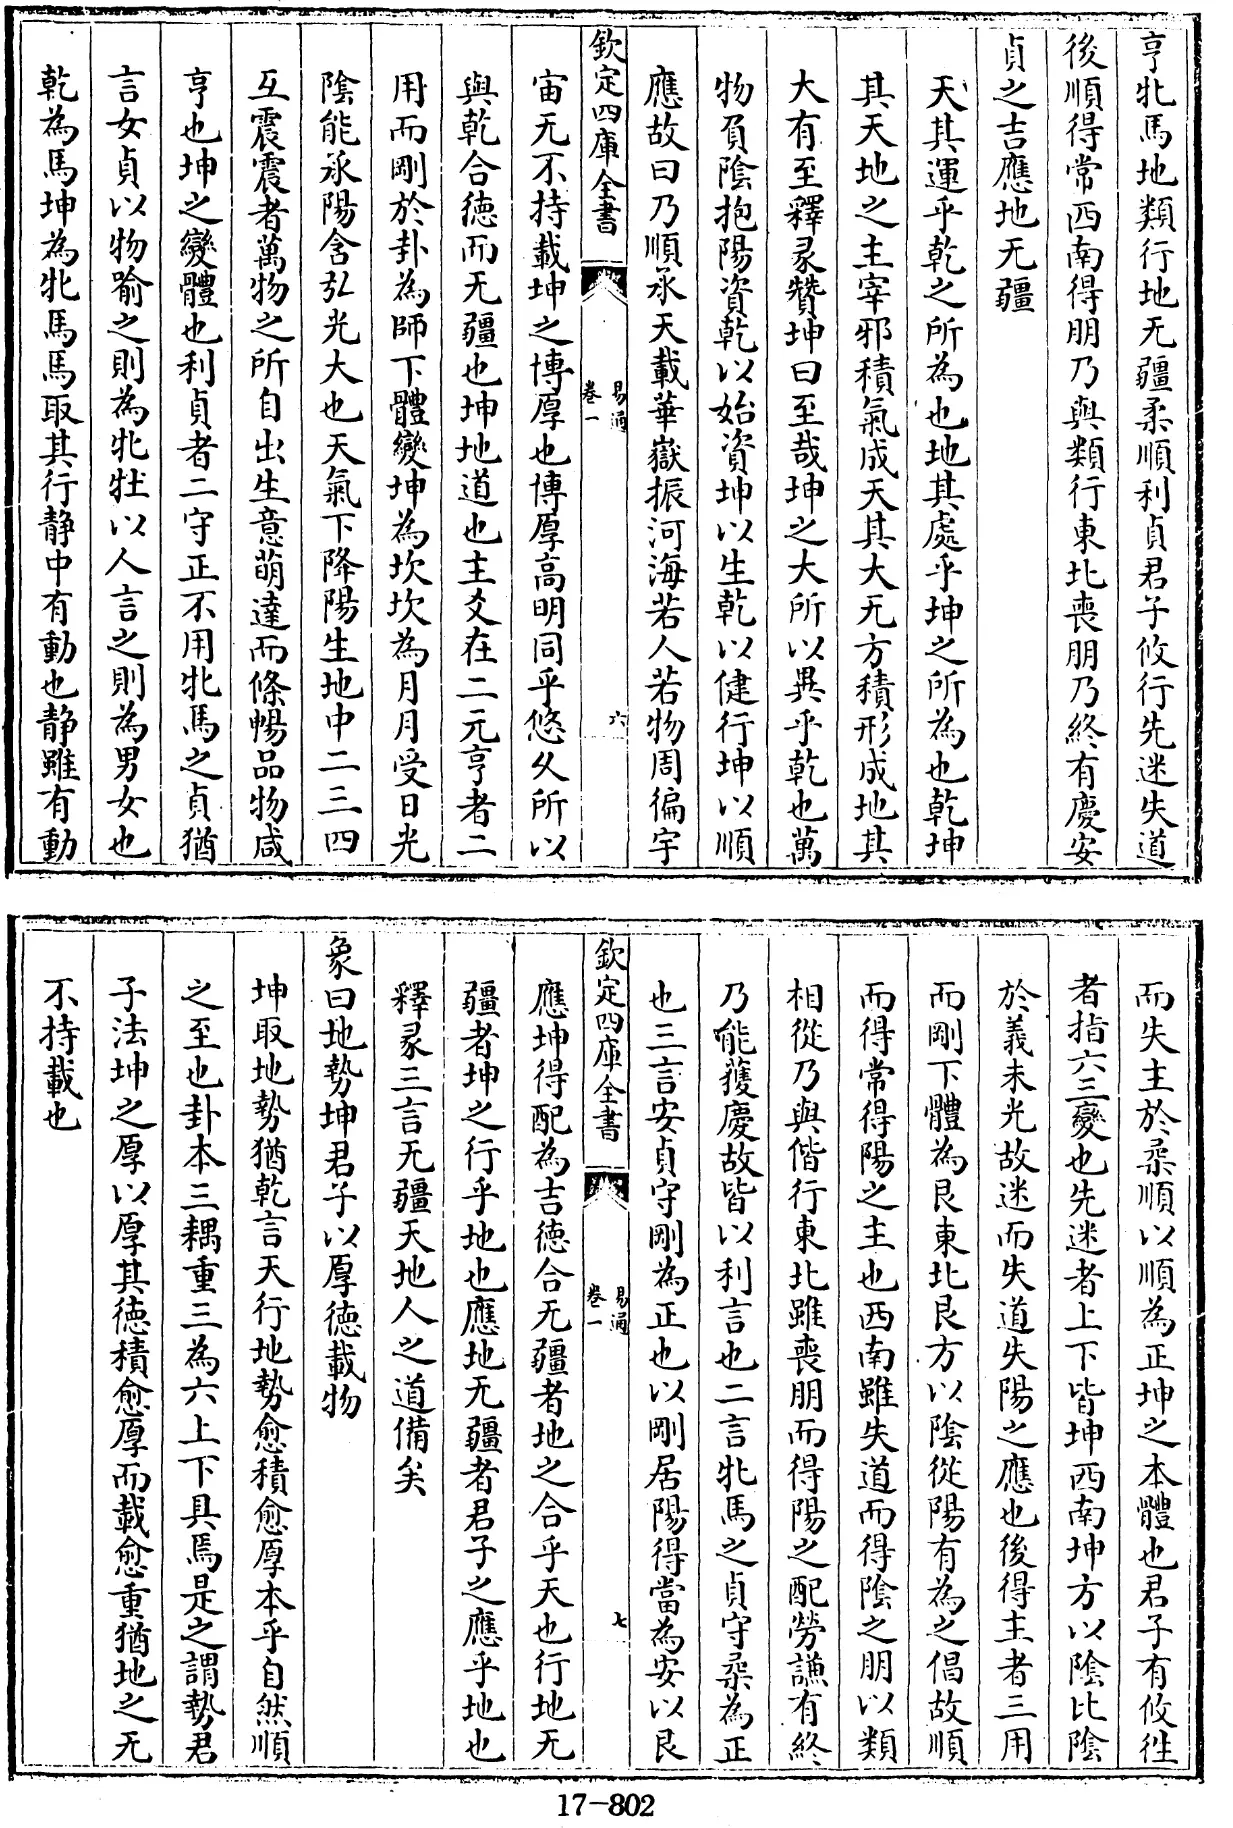 亨牝馬地類行地无疆柔順利貞君子攸行先迷失道
後順得常西南得朋乃與類行東北喪朋乃終有慶安
貞之吉應地无疆
天其運乎乾之所為也地其處乎坤之所為也乾坤
其天地之主宰邪積氣成天其大无方積形成地其
大有至釋彖贊坤曰至哉坤之大所以異乎乾也萬
物負陰抱陽資乾以始資坤以生乾以健行坤以順
應故曰乃順承天載華嶽振河海若人若物周徧宇
欽定四庫全書
易通
卷一
六
宙无不持載坤之博厚也博厚高明同乎悠久所以
與乾合德而无疆也坤地道也主爻在二元亨者二
用而剛於卦為師下體變坤為坎坎為月月受日光
陰能承陽含弘光大也天氣下降陽生地中二三四
互震震者萬物之所自出生意萌達而條暢品物咸
亨也坤之變體也利貞者二守正不用牝馬之貞猶
言女貞以物喻之則為牝牡以人言之則為男女也
乾為馬坤為牝馬馬取其行静中有動也静雖有動
而失主於柔順以順為正坤之本體也君子有攸往
者指六三變也先迷者上下皆坤西南坤方以陰比陰
於義未光故迷而失道失陽之應也後得主者三用
而剛下體為艮東北艮方以陰從陽有為之倡故順
而得常得陽之主也西南雖失道而得陰之朋以類
相從乃與偕行東北雖喪朋而得陽之配勞謙有終
乃能獲慶故皆以利言也二言牝馬之貞守柔為正
也三言安貞守剛為正也以剛居陽得當為安以艮
欽定四庫全書
易通
卷一
七
應坤得配為吉德合无疆者地之合乎天也行地无
疆者坤之行乎地也應地无疆者君子之應乎地也
釋彖三言无疆天地人之道備矣
象曰地勢坤君子以厚德載物
坤取地勢猶乾言天行地勢愈積愈厚本乎自然順
之至也卦本三耦重三為六上下具焉是之謂勢君
子法坤之厚以厚其德積愈厚而載愈重猶地之无
不持載也
17-802